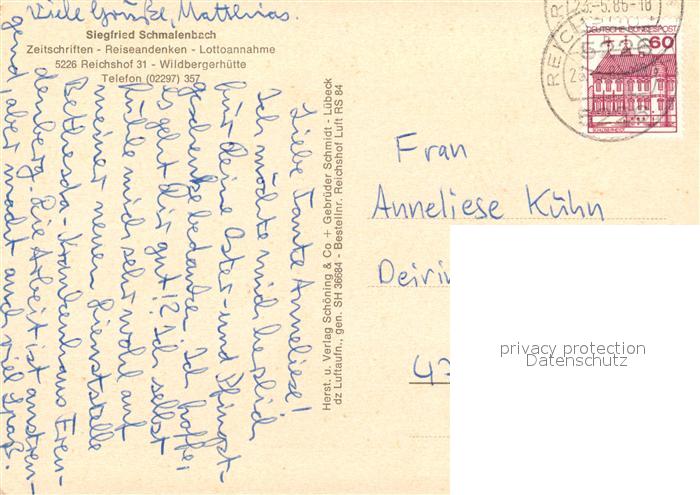 Viele Grüße, Matthias.
Siegfried Schmalenbach
Zeitschriften - Reiseandenken - Lottoannahme
5226 Reichshof 31 - Wildbergerhütte
Telefon (02297) 357
Liebe Tante Anneliese!
Ich möchte mich herzlich
für Deine Oster- und Pfingst-
geschenke bedanken. Ich hoffe,
es geht Dir gut!? Ich selbst
fühle mich sehr wohl auf
meiner neuen Dienststelle
Bethesda-Krankenhaus Freu-
denberg. Die Arbeit ist anstren-
gend, aber macht auch viel Spaß.
Herst. u. Verlag Schöning & Co + Gebrüder Schmidt - Lübeck
dz Luftaufn., gen. SH 36684 - Bestellnr. Reichshof Luft RS 84
23.-5.86-18
5226
DEUTSCHE BUNDESPOST
60
SCHLOSS RHEYDT
Frau
Anneliese Kühn
Deirin
47
privacy protection
Datenschutz